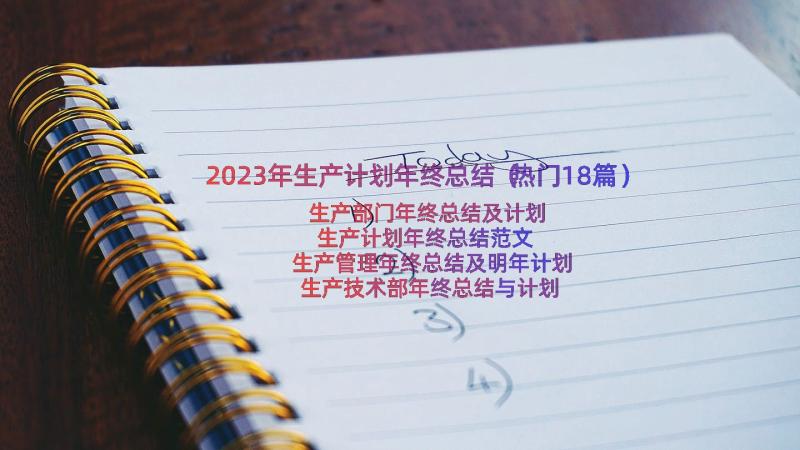 Today
2023年生产计划年终总结（热门18篇）
1)
生产部门年终总结及计划
生产计划年终总结范文
2)
生产管理年终总结及明年计划
生产技术部年终总结与计划
3)
4)